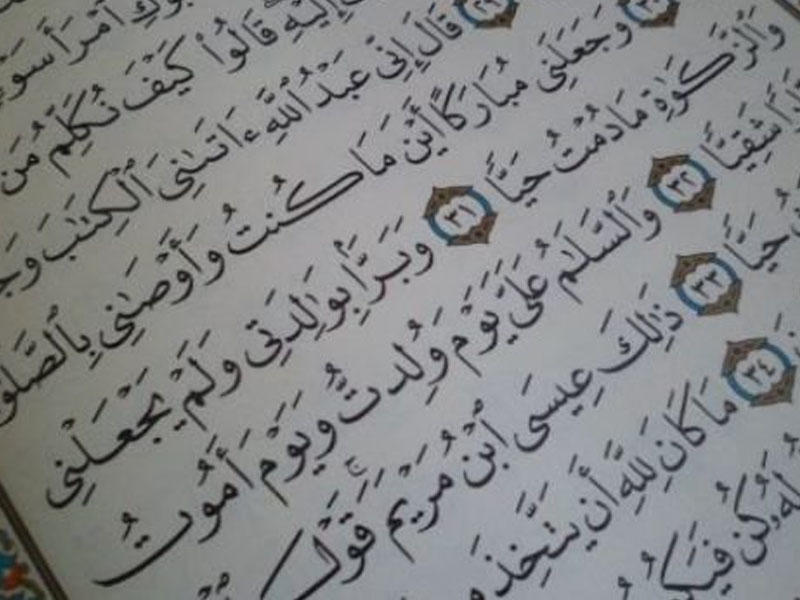 ٱمْرَأَ سَوْءٍ
إِلَيْهِ قَالُوا۟ كَيْفَ نُكَلِّمُ مَن
٢٩ قَالَ إِنِّى عَبْدُ ٱللَّهِ ءَاتَىٰنِىَ ٱلْكِتَٰبَ
٣٠ وَجَعَلَنِى مُبَارَكًا أَيْنَ مَا كُنتُ وَأَوْصَٰنِى
وَٱلزَّكَوٰةِ مَا دُمْتُ حَيًّا ٣١ وَبَرًّۢا بِوَٰلِدَتِى وَلَمْ يَجْعَلْنِى
شَقِيًّا ٣٢ وَٱلسَّلَٰمُ عَلَىَّ يَوْمَ وُلِدتُّ وَيَوْمَ أَمُوتُ
حَيًّا ٣٣ ذَٰلِكَ عِيسَى ٱبْنُ مَرْيَمَ قَوْلَ
٣٤ مَا كَانَ لِلَّهِ أَن يَتَّخِذَ
لَهُۥ كُن